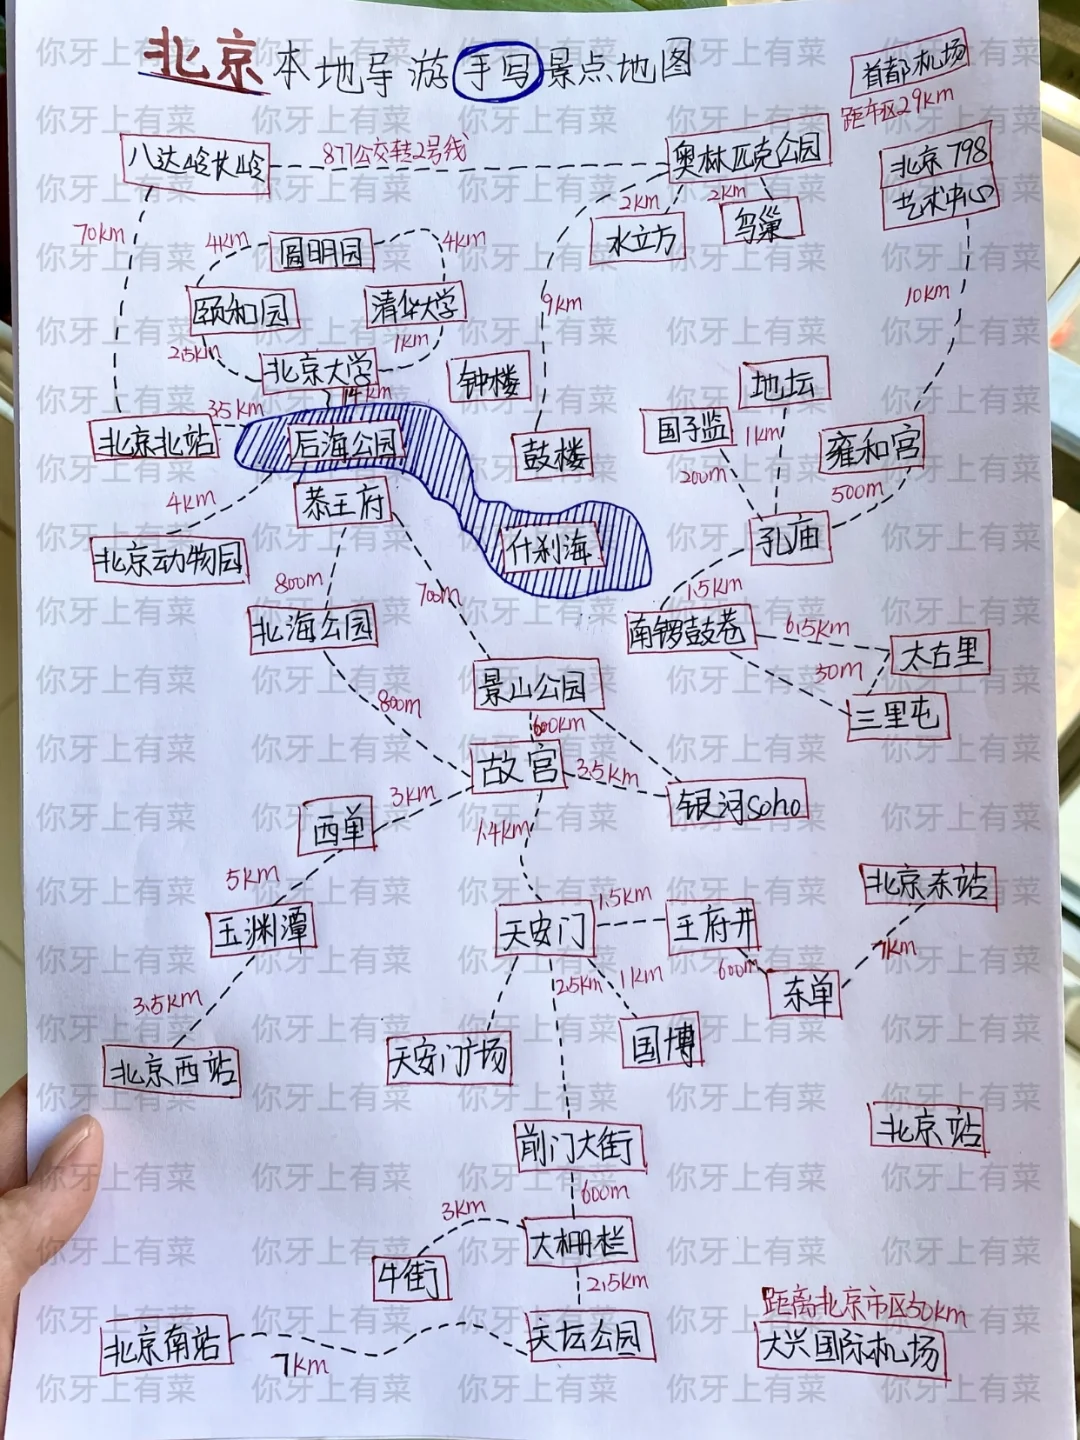 北京本地导游手写景点地图
首都机场
距市区29km
八达岭长岭
877公交转2号线
奥林匹克公园
北京798
艺术中心
2km
2km
水立方
鸟巢
70km
4km
圆明园
4km
颐和园
清华大学
9km
10km
2.5km
北京大学
1km
钟楼
地坛
14km
3.5km
北京北站
后海公园
鼓楼
国子监
1km
雍和宫
200m
500m
恭王府
4km
北京动物园
什刹海
孔庙
800m
700m
1.5km
北海公园
南锣鼓巷
6.5km
太古里
50m
三里屯
景山公园
800m
600km
故宫
3.5km
银河soho
3km
西单
1.4km
5km
北京东站
玉渊潭
天安门
1.5km
王府井
7km
600m
东单
2.5km
1km
3.5km
北京西站
天安门广场
国博
北京站
前门大街
600m
3km
大栅栏
牛街
2.5km
距离北京市区50km
北京南站
7km
天坛公园
大兴国际机场
你牙上有菜